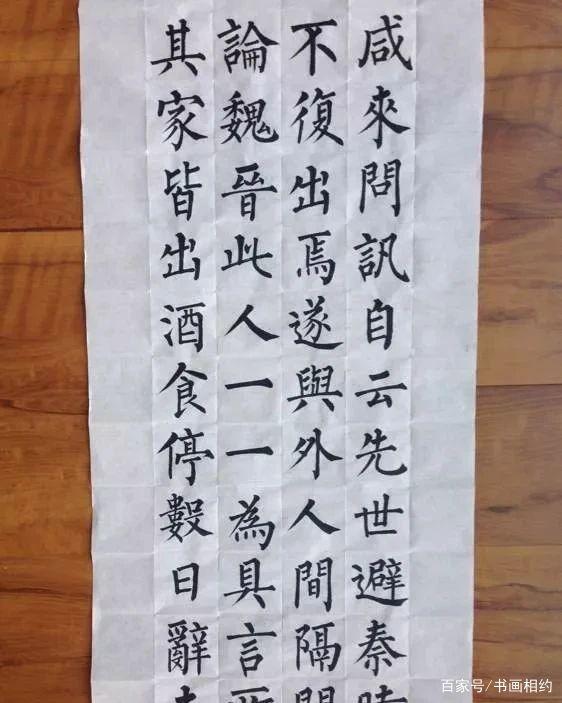 咸來問訊自云先世避秦時
不復出焉遂與外人間隔問
論魏晉此人一一為具言所
其家皆出酒食停數日辭去
百家号/书画相约